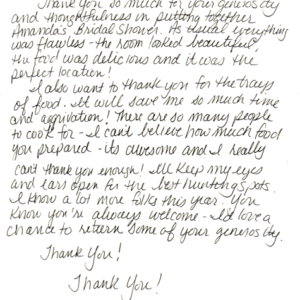 Thank you so much for your generosity
and thoughtfulness in putting together
Amanda's Bridal Shower. As usual everything
was flawless - the room looked beautiful,
the food was delicious and it was the
perfect location!
I also want to thank you for the trays
of food. It will save me so much time
and aggravation! There are so many people
to cook for - I can't believe how much food
you prepared - its awesome and I really
can't thank you enough! I'll keep my eyes
and ears open for the best hunting spots.
I know a lot more folks this year. You
know you're always welcome - I'd love a
chance to return some of your generosity.
Thank You!
Thank You!